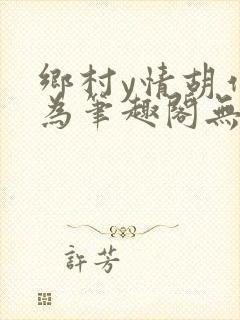 鄉村y情胡
為筆趣閣無
許芳